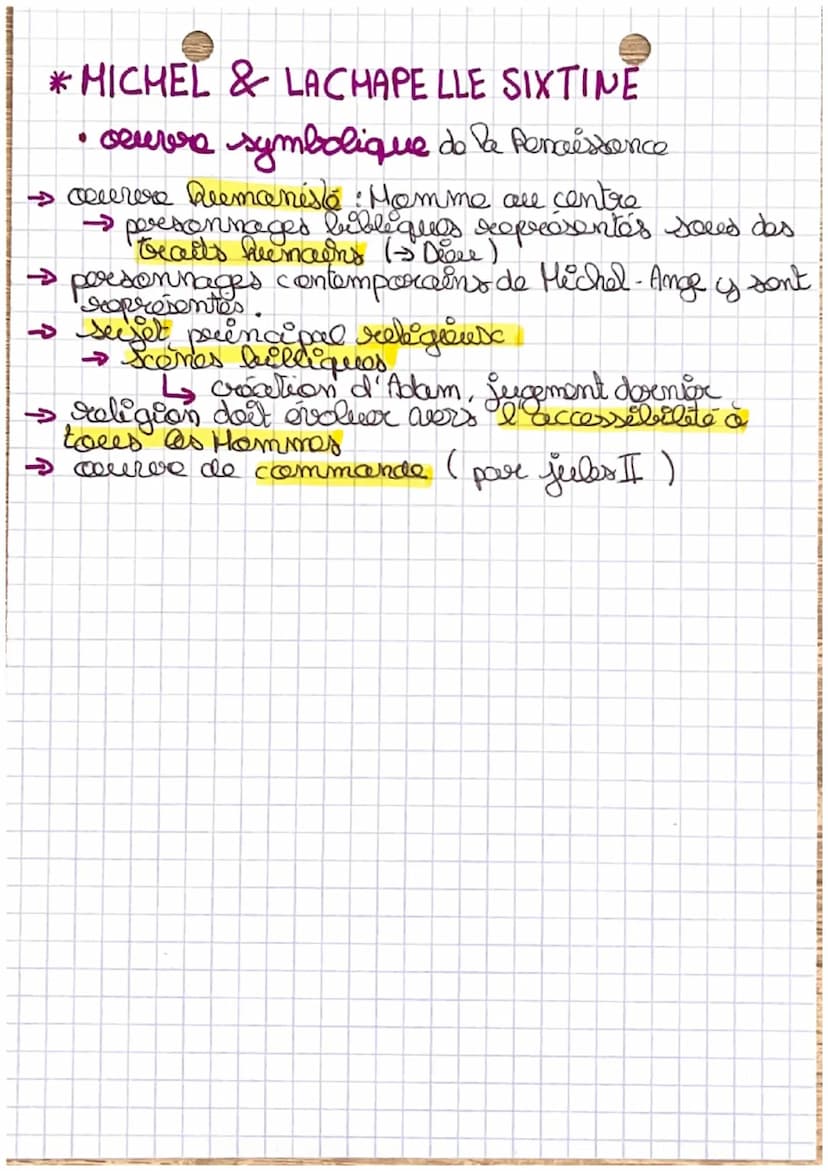 * MICHEL & LA CHAPELLE SIXTINE
• oeuvre symbolique de la Renaissance
→ oeuvre humaniste : Homme au centre
→ personnages bibliques représentés sous des
traits humains (→ Dieu)
→ personnages contemporains de Michel-Ange y sont
représentés.
→ sujet principal religieux
→ scènes bibliques
↳ création d'Adam, jugement dernier
→ religion doit évoluer vers l'accessibilité à
tous les Hommes
→ oeuvre de commande (par jules II)